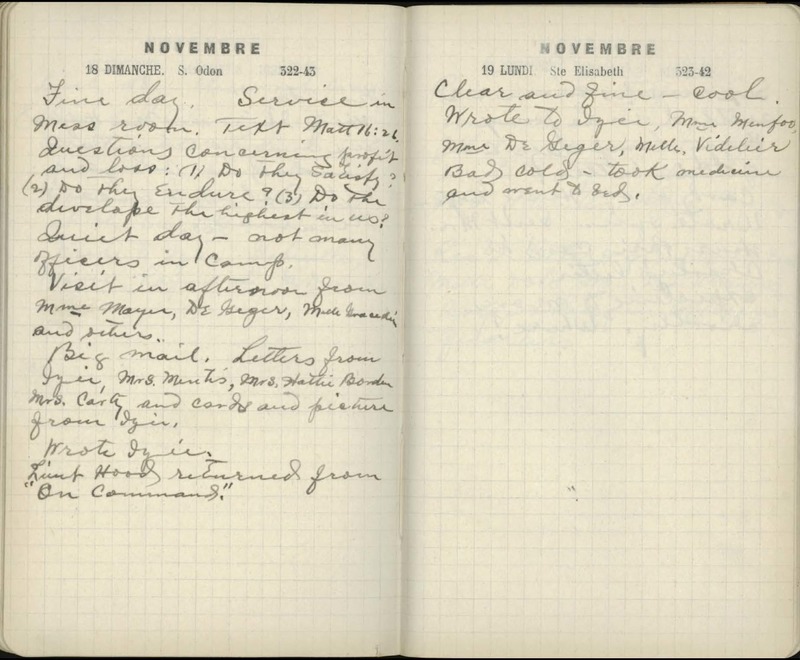 NOVEMBRE
18 DIMANCHE. S. Odon 322-43
Fine day. Service in
Mess room. Text Matt 16:26.
Questions concerning profit
and loss: (1) Do they Satisfy?
(2) Do they Endure? (3) Do the
develope the highest in us?
Quiet day - not many
officers in Camp.
Visit in afternoon from
Mme Mayer, De Geger, Melle
and others.
Big mail. Letters from
Izie, Mrs. Mentis, Mrs. Hattie Borden
Mrs. Carty and cards and picture
from Izie.
Wrote Izie.
Lieut Hood returned from
"On Command."
NOVEMBRE
19 LUNDI Ste Elisabeth 323-42
Clear and fine - cool.
Wrote to Izie, Mme
Mme De Geger, Melle. Videlier
Bad cold - took medicine
and went to bed.